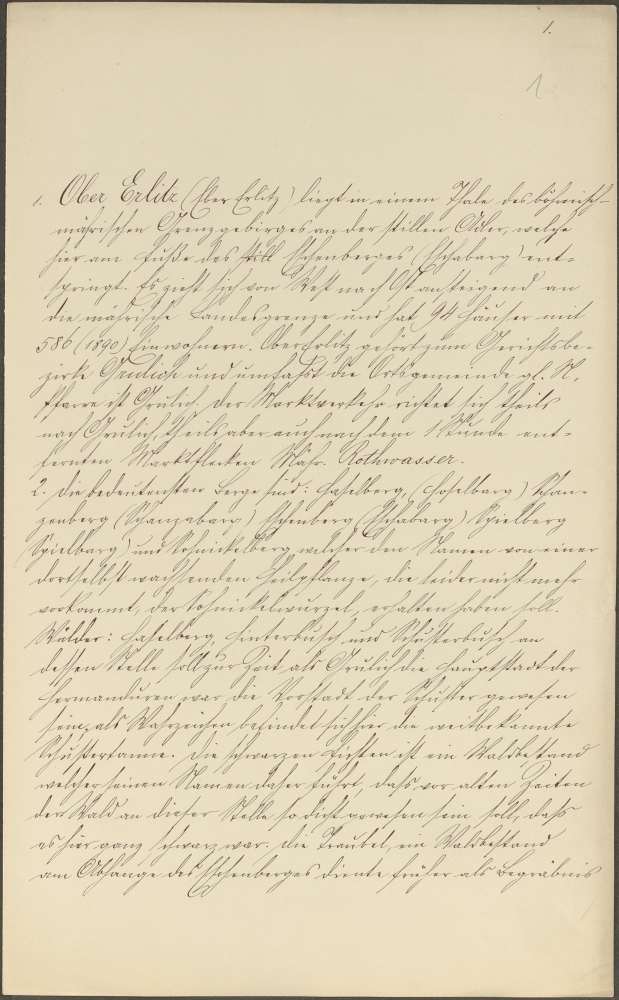 1.
1
1. Ober Erlitz (Eber Erlitz) liegt in einem Thale des böhmisch-
mährischen Grenzgebirges an der stillen Adler, welche
hier am Fuße des Eschenberges (Eschabarg) ent-
springt. Es zieht sich von West nach Ost ansteigend an
die mährische Landesgrenze und hat 94 Häuser mit
586 (1890) Einwohnern. Ober Erlitz gehört zum Gerichtsbe-
zirke Grulich und umfasst die Ortsgemeinde gl. N.
Pfarre ist Grulich. Der Marktverkehr richtet sich theils
nach Grulich, theils aber auch nach dem 1 Stunde ent-
fernten Marktflecken Mähr. Rothwasser.
2. Die bedeutensten Berge sind: Haselberg, (Hoselbarg) Schan-
zenberg (Schanzabarg) Eschenberg (Eschabarg) Spielberg
(Spielbarg) und Schnickelberg, welcher den Namen von einer
dortselbst wachsenden Heilpflanze, die leider nicht mehr
vorkommt, der Schnickelwurzel, erhalten haben soll.
Wälder: Haselberg, Hinterbusch und Schusterbusch an
dessen Stelle soll zur Zeit als Grulich die Hauptstadt der
Hermanduren war, die Vorstadt der Schuster gewesen
sein; als Wahrzeichen befindet sich hier die weitbekannte
Schustertanne. Die schwarzen Fichten ist ein Waldbestand
welcher seinen Namen daher führt, dass vor alten Zeiten
der Wald an dieser Stelle so dicht gewesen sein soll, dass
es hier ganz schwarz war. Die Traubel, ein Waldbestand
am Abhange des Eschenberges diente früher als Begräbnis